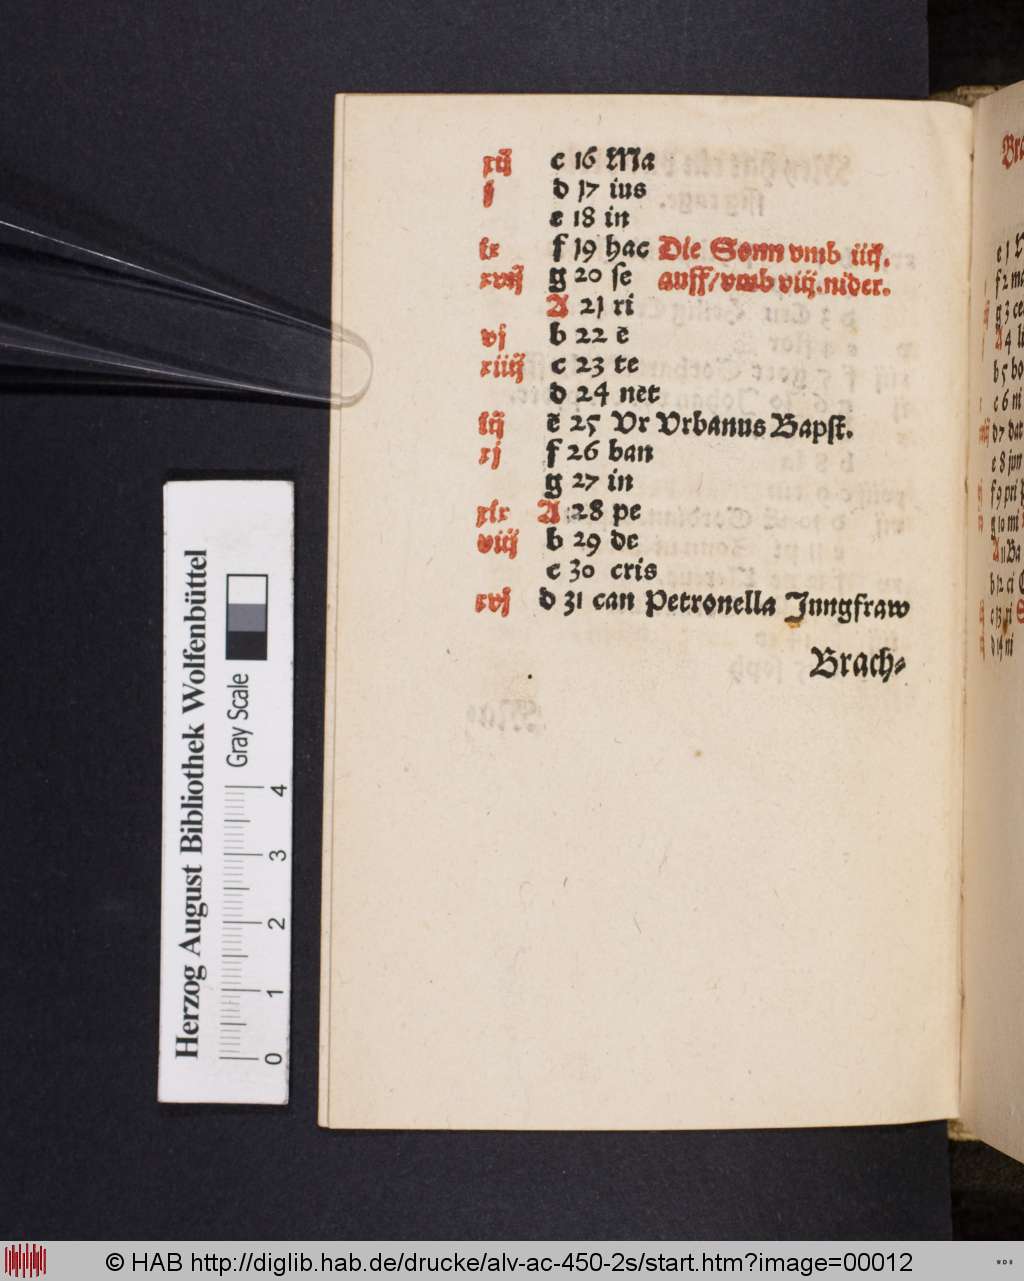 xij c 16 Ma
j d 17 ius
e 18 in
ix f 19 hac Die Sonn vmb iiij.
xvij g 20 se auff/vmb viij.nider.
A 21 ri
vj b 22 ē
xiiij c 23 te
d 24 net
iij ē 25 Vr Vrbanus Bapst.
xj f 26 ban
g 27 in
xix A 28 pe
viij b 29 de
c 30 cris
xvj d 31 can Petronella Jungfraw
Brach⸗
Herzog August Bibliothek Wolfenbüttel
Gray Scale
0 1 2 3 4
© HAB http://diglib.hab.de/drucke/alv-ac-450-2s/start.htm?image=00012